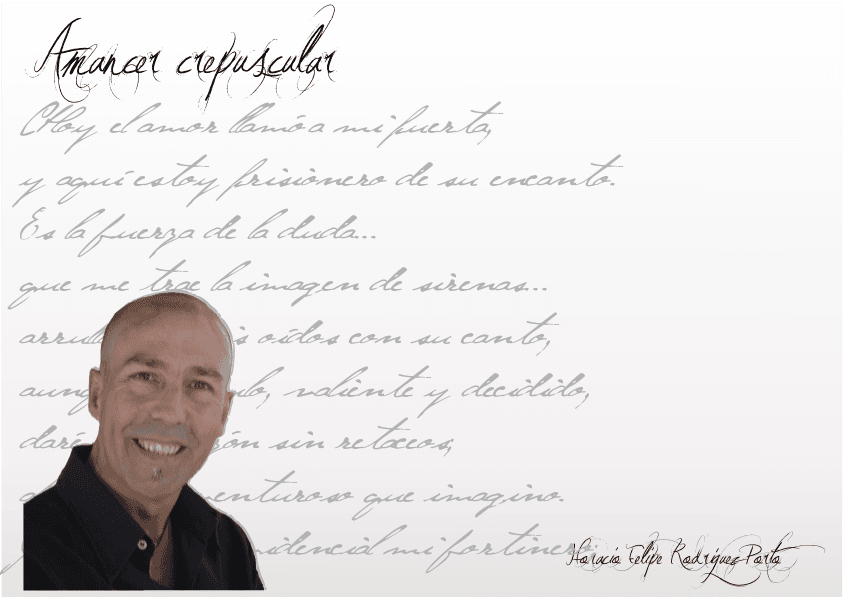 Amancer crepuscular
Hoy el amor llamó a mi puerta,
y aquí estoy prisionero de su encanto.
Es la fuerza de la duda...
que me trae la imagen de sirenas...
oídos con su canto,
valiente y decidido,
sin retaceos,
que imagino.
mi fortinero
Horacio Felipe Rodríguez Porto